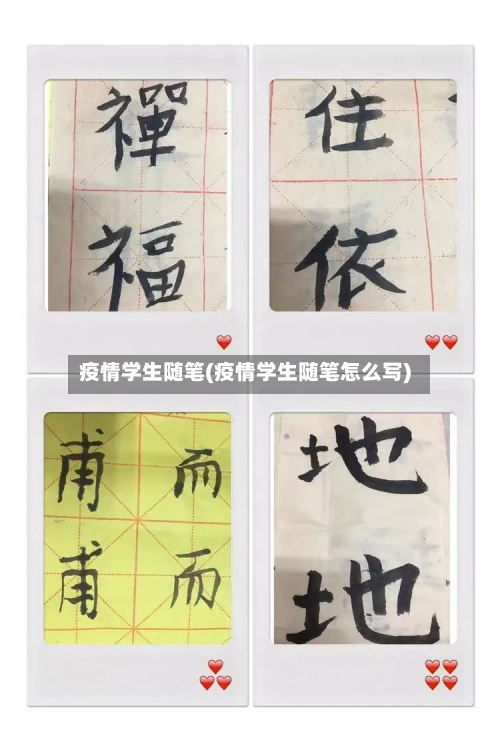 禪
福
住
依
疫情学生随笔(疫情学生随笔怎么写)
甫 而
甫 而
地
地